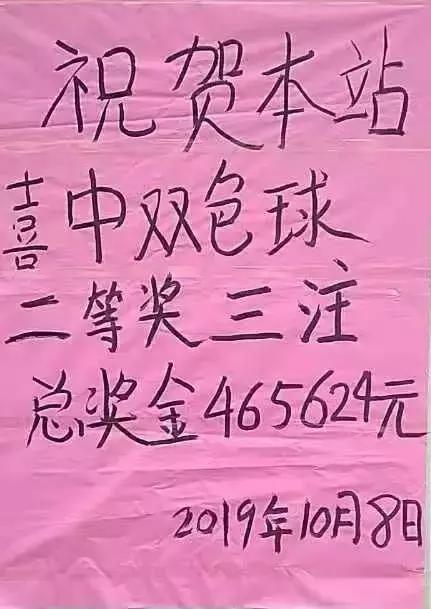 祝贺本站
喜中双色球
二等奖三注
总奖金465624元
2019年10月8日